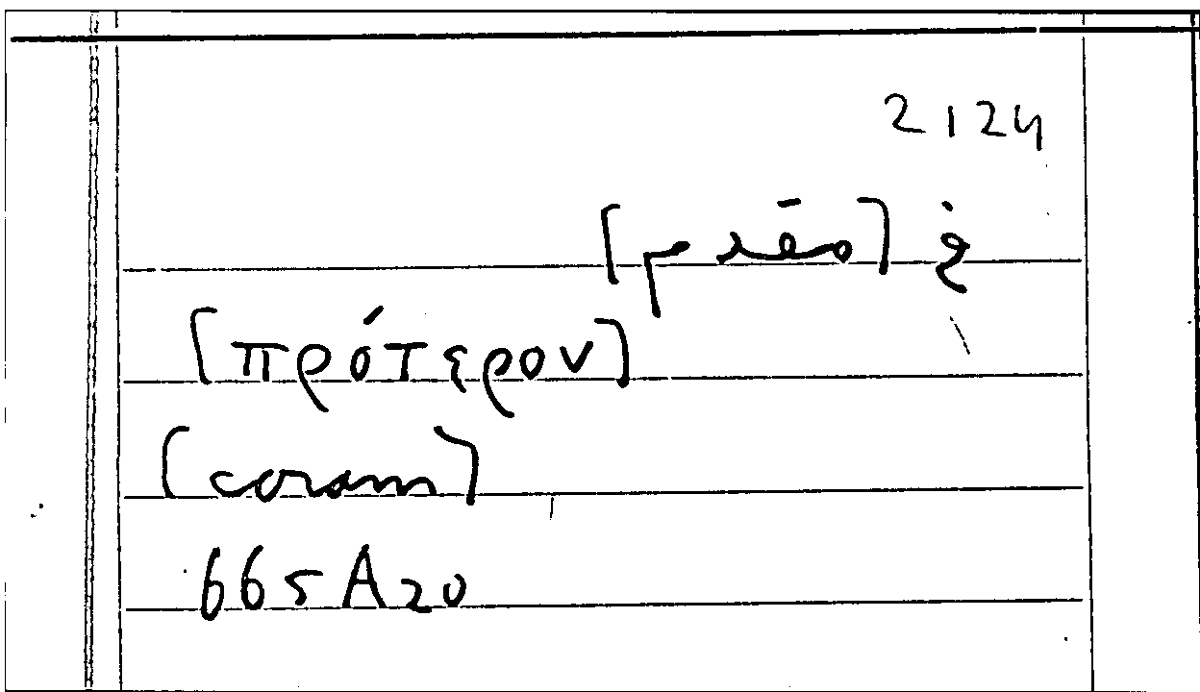 2124
[πρότερον]
[coram]
665A20